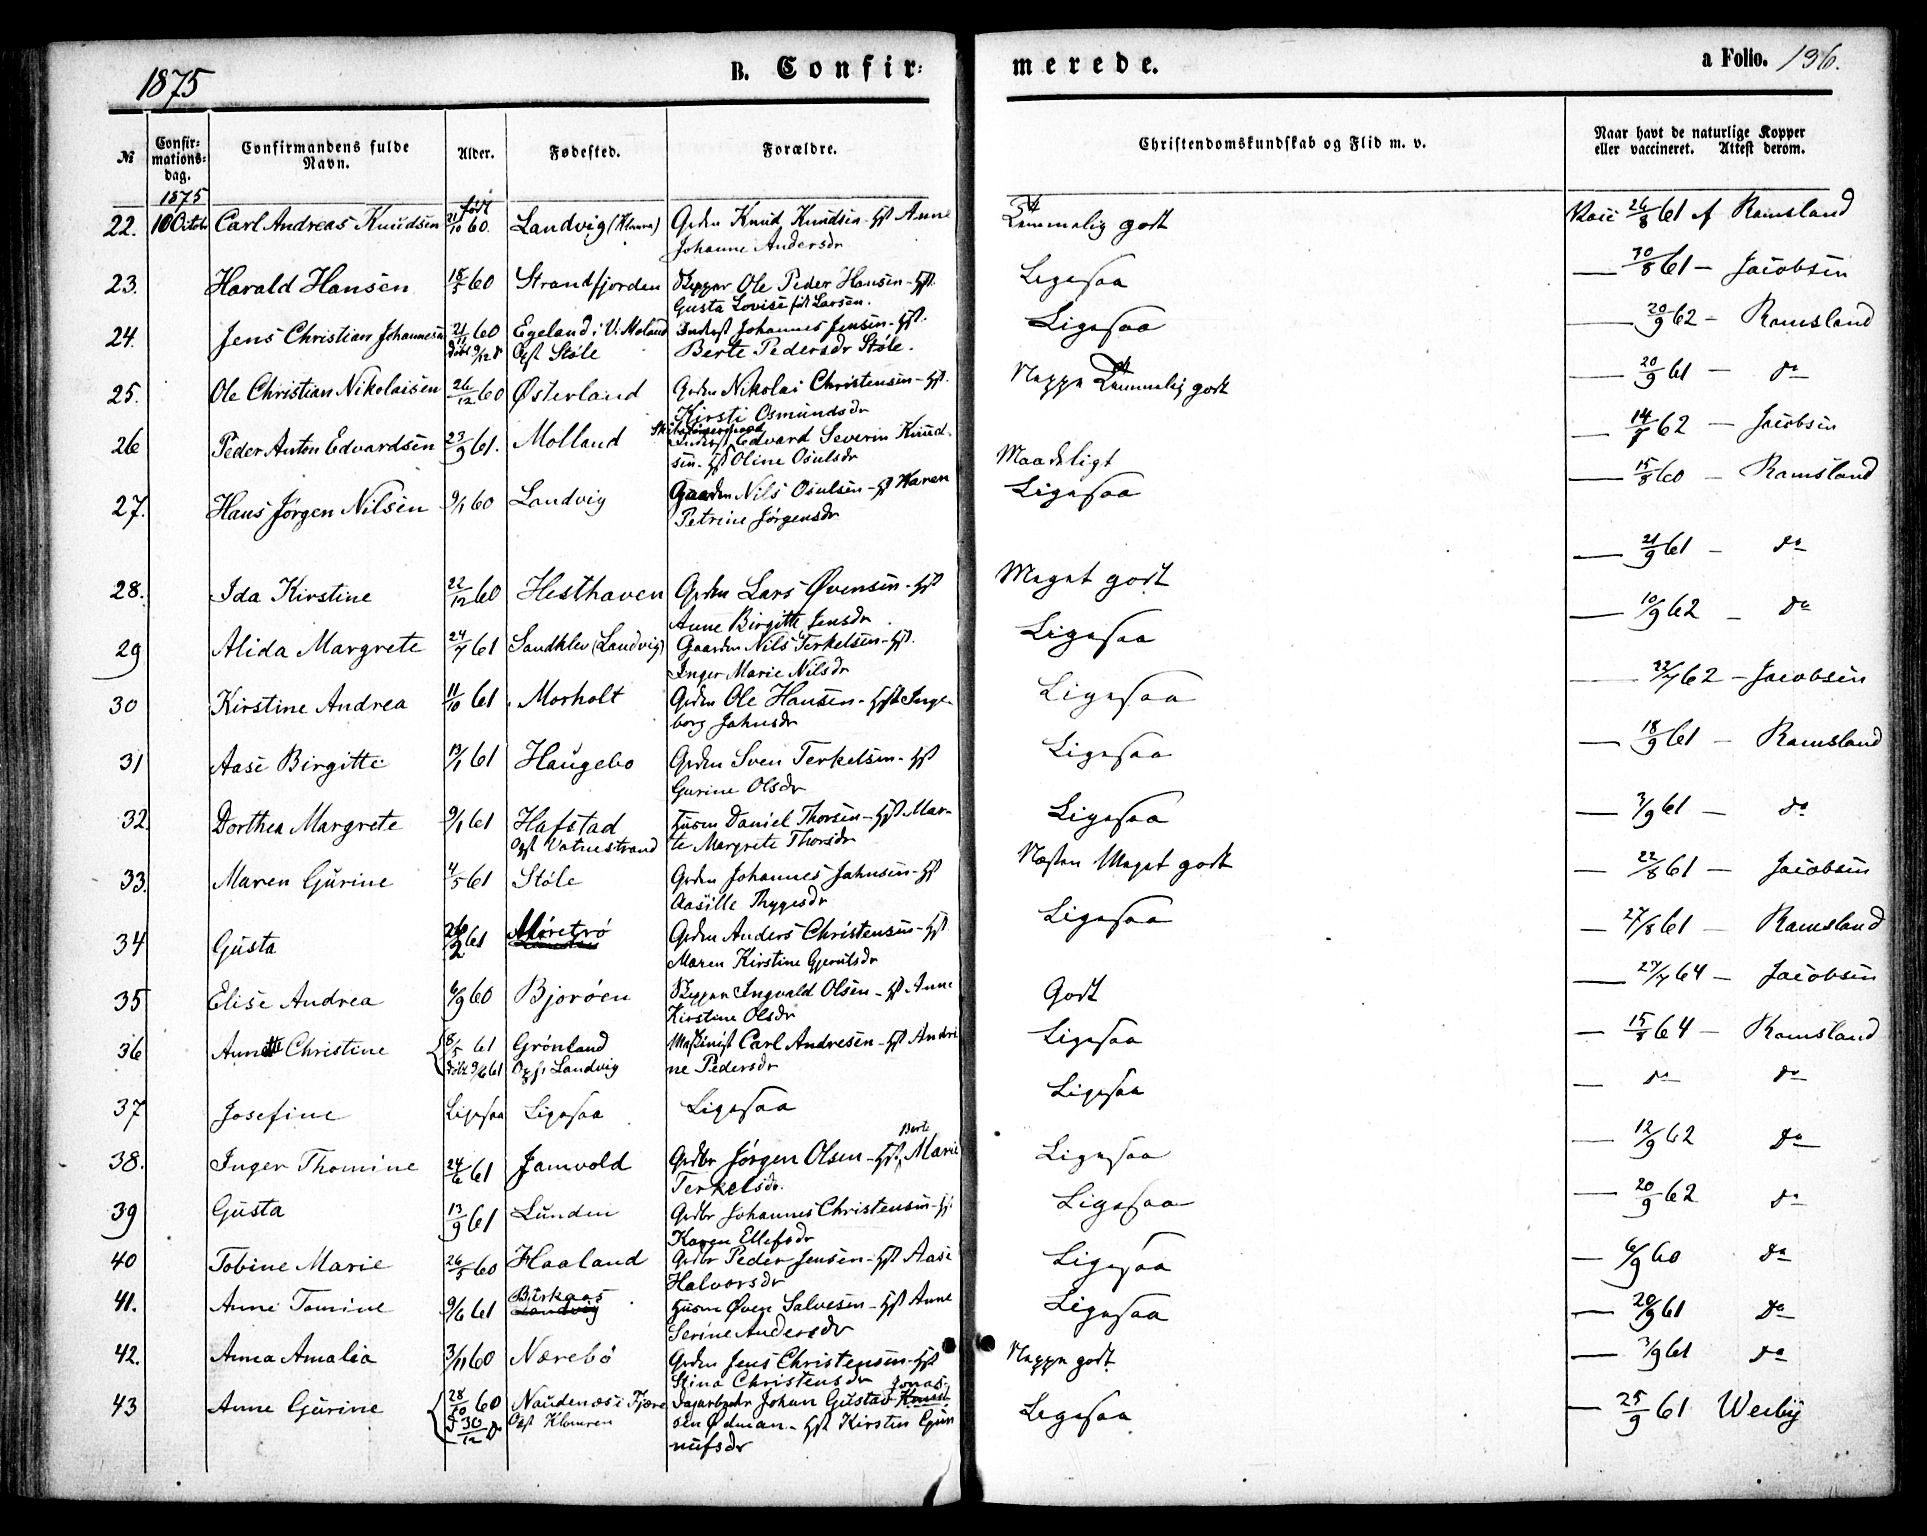 1875 B. Confir- merede. a Folio. 136.
№ Confir-mations-dag. Confirmandens fulde Navn. Alder. Fødested. Forældre. Christendomskundskab og Flid m. v. Naar havt de naturlige Kopper eller vaccineret. Attest derom.
1875 født
22. 10 Octobr Carl Andreas Knudsen 21/10 60. Landvig Grdm Knud Knudsen - Hst Anne Temmelig godt Vacc 26/8 61 af Ramsland
Johanne Andersdr
23. Harald Hansen 18/5 60 Strandfjorden Skipper Ole Peder Hansen - Hst. Ligesaa — 30/8 61 — Jacobsen
Gusta Lovise født Larsen.
24. Jens Christian Johannesen 21/11 60 Egeland i V. Moland Inderst Johannes Jensen - Hst. Ligesaa — 20/9 62 — Ramsland
døbt 9/12 Opf Støle Berte Pedersdr Støle.
25. Ole Christian Nikolaisen 26/12 60 Østerland Grdm Nikolai Christensen - Hst. Neppe Temmelig godt — 20/9 61 — do
Kirsti Osmundsdr
26 Peder Anton Edvardsen 23/9 61. Molland Inderst Edvard Severin Knud- Maadeligt — 14/8 62 — Jacobsen
sen. Hst Oline Osulsdr
27. Hans Jørgen Nilsen 9/1 60 Landvig Gaardm Nils Osulsen - Hst Karen Ligesaa — 15/8 60 — Ramsland
Petrine Jørgensdr
28. Ida Kirstine 22/12 60 Hesthaven Grdm Lars Øvensen - Hst Meget godt — 21/9 61 — do
Anne Birgitte Jensdr
29 Alida Margrete 24/7 61 Sandklev (Landvig) Gaardm Nils Terkelsen - Hst. Ligesaa — 10/9 62 — do
Inger Marie Nilsdr
30 Kirstine Andrea 11/10 61 Morholt Grdm Ole Hansen - Hst Inge- Ligesaa — 22/7 62 — Jacobsen
borg Jahnsdr
31 Aase Birgitte 13/1 61 Haugebo Grdm Sven Terkelsen - Hst Ligesaa — 18/9 61 — Ramsland
Gurine Olsdr
32. Dorthea Margrete 9/1 61 Hafstad Husm Daniel Thorsen - Hst Mar- Ligesaa — 3/9 61 — do
Opf Vatnestrand te Margrete Thorsdr
33. Maren Gurine 4/5 61 Støle Grdm Johannes Jahnsen - Hst Næsten Meget godt — 22/8 61 — Jacobsen
Aasille Thygesdr
34 Gusta 26/2 61 Møretrø Grdm Anders Christensen - Hst Ligesaa — 27/8 61 — Ramsland
Maren Kirstine Gjerulsdr
35 Elise Andrea 6/9 60 Bjorøen Skipper Ingvald Olsen - Hst Anne Godt — 27/7 64 — Jacobsen
Kirstine Olsdr
36 Anne Christine 8/5 61 Grønland Maskinist Carl Andresen - Hst Andri Ligesaa — 15/8 64 — Ramsland
døbt 9/6 61 Opf. Landvig ne Pedersdr
37 Josefine Ligesaa Ligesaa Ligesaa Ligesaa — do do
38. Inger Thomine 24/6 61 Jamvold Grdbr Jørgen Olsen - Hst. Berte Marie Ligesaa — 12/9 62 do
Terkelsdr.
39 Gusta 13/9 61 Lunden Grdbr Johannes Christensen - Hst. Ligesaa — 20/9 62 do
Karen Ellefsdr
40 Tobine Marie 26/5 60 Haaland Grdbr Peder Jensen - Hst Aase Ligesaa — 6/9 60 do
Halvorsdr
41. Anne Tomine 9/6 61 Birkaas Landvig Husm Øven Salvesen - Hst Anne Ligesaa — 20/9 61 do
Serine Andersdr
42. Anna Amalia 3/11 60 Nærebø Grdm Jens Christensen - Hst Neppe godt — 3/9 61 do
Stina Christensdr
43 Anne Gurine 28/10 60 Naudenæs i Fjære Dagarbeider Johan Gustav Jonas- Ligesaa — 25/9 61 Werby
d 30/12 Opf sen Ødman - Hst Kirsten Gun
nufsdr